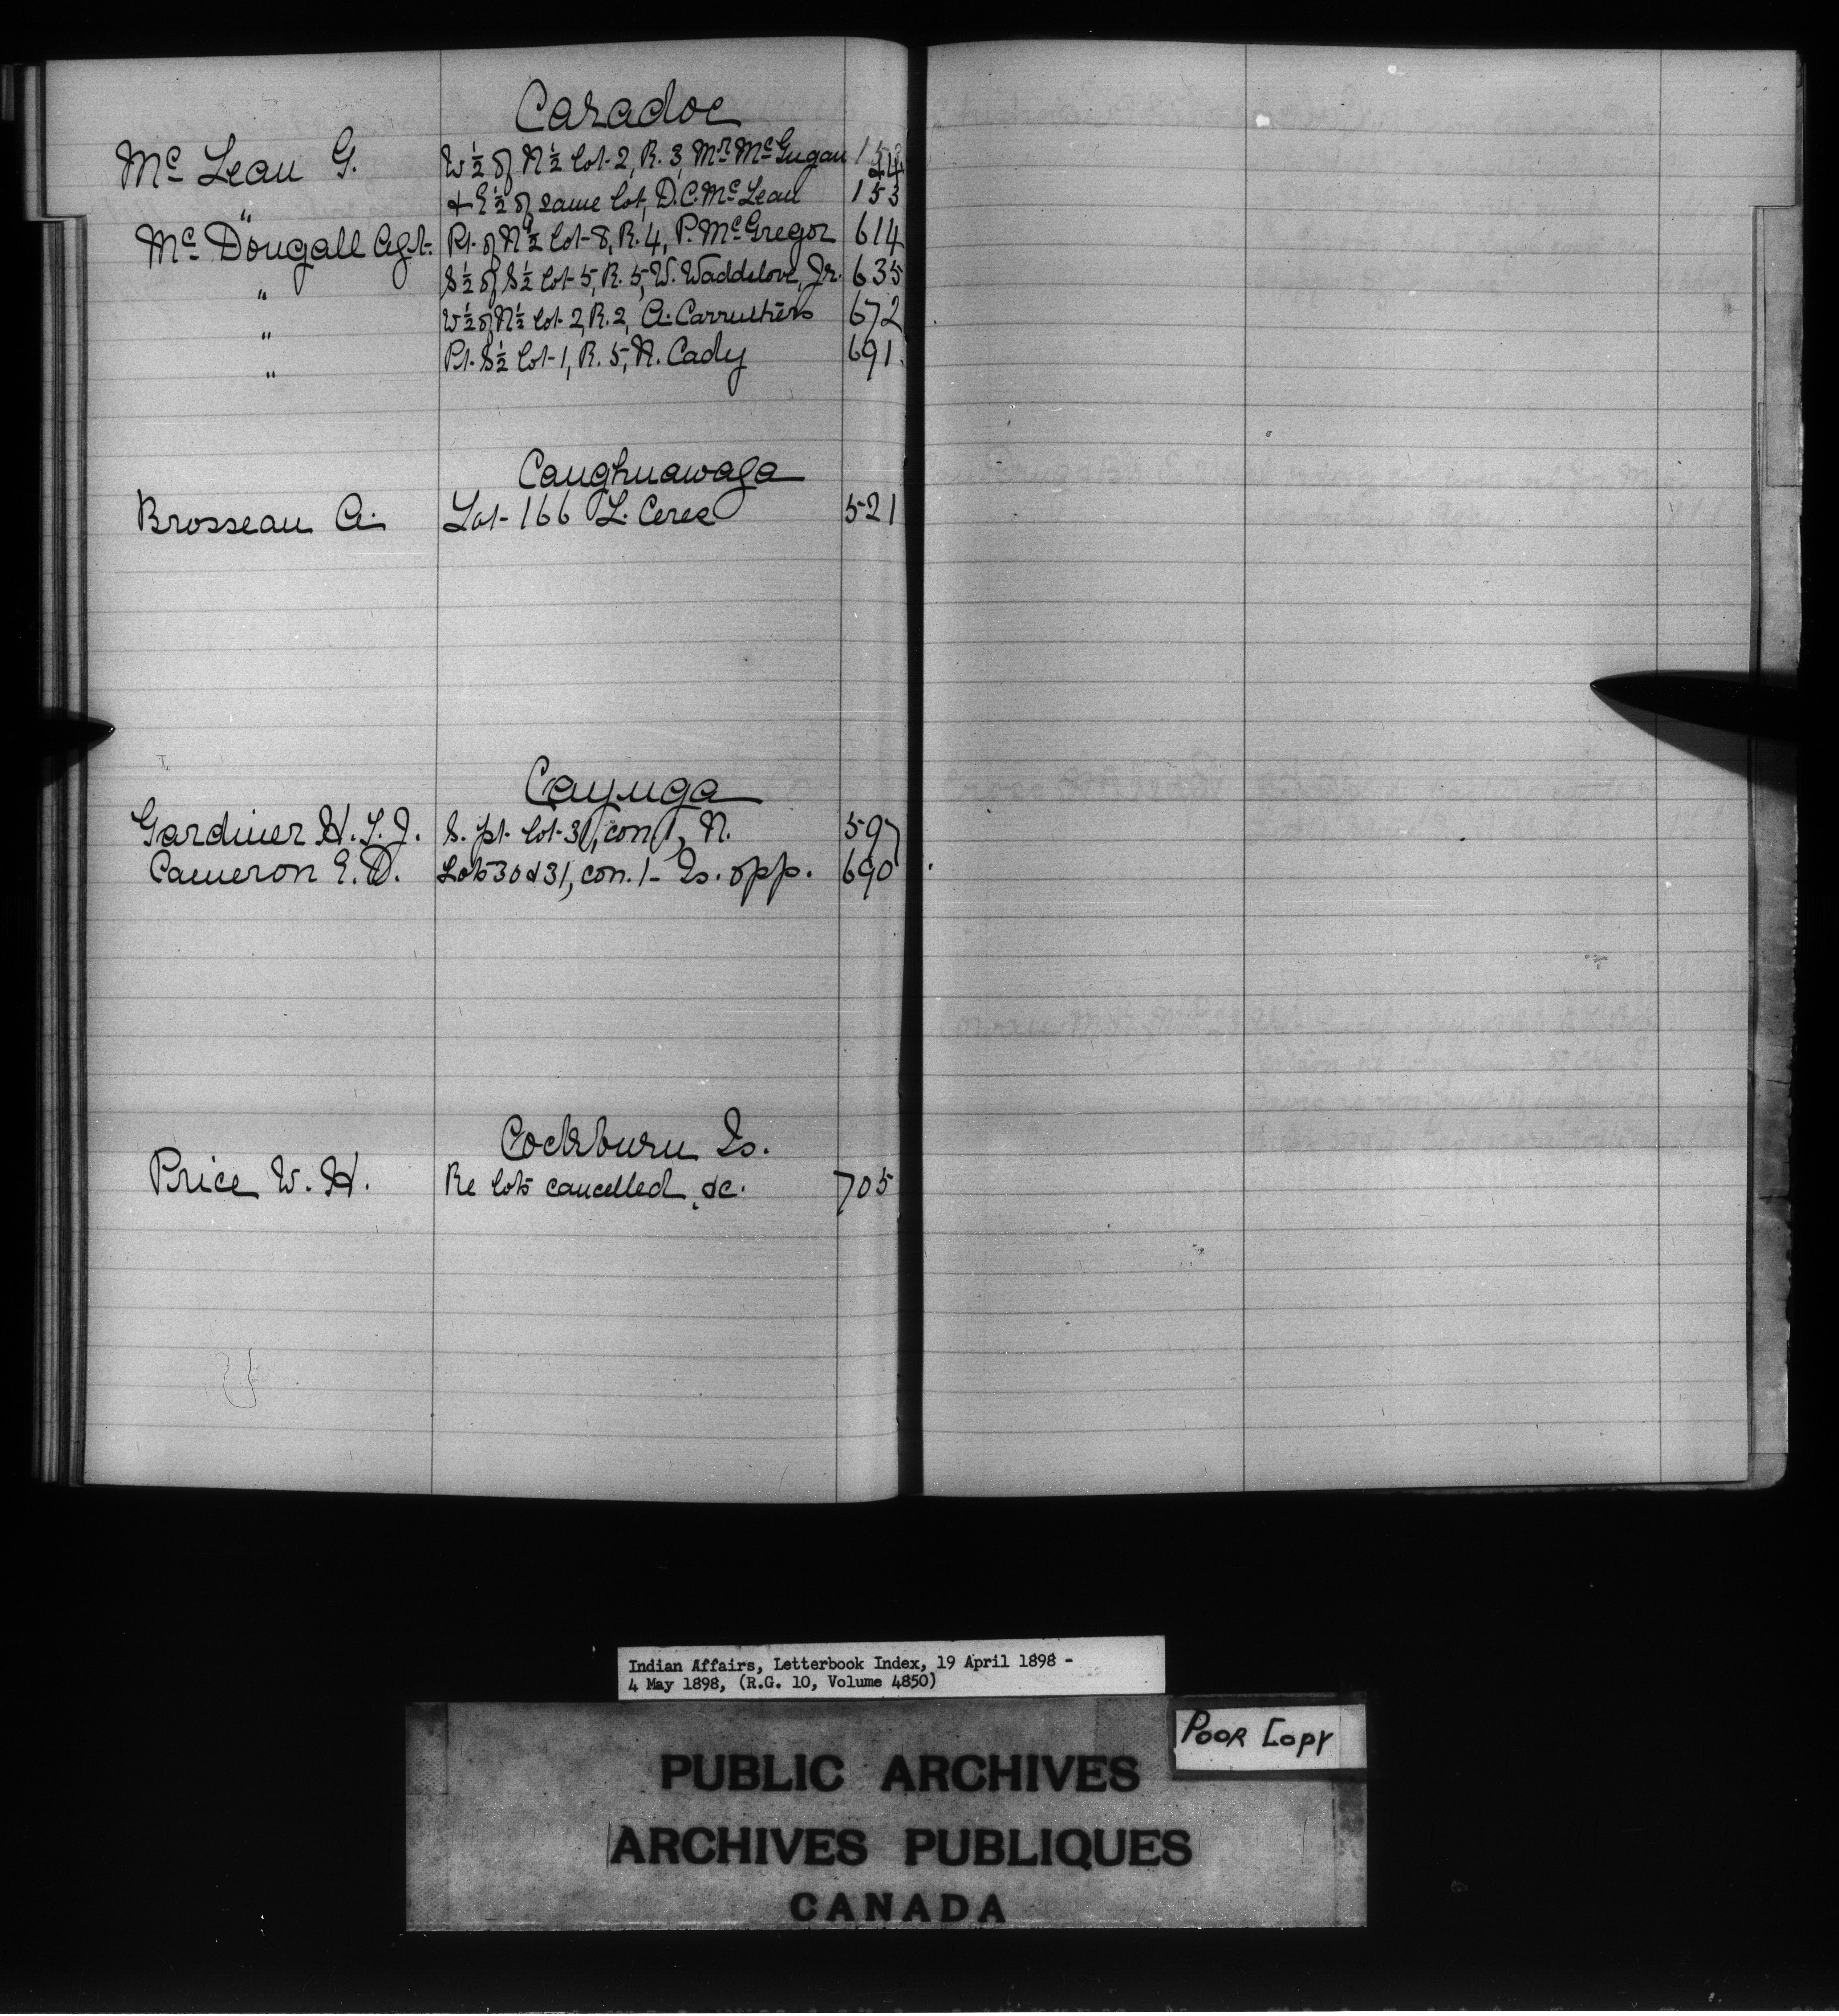 Caradoc
Mc Lean G. W ½ of N ½ lot 2, R. 3, Mr. McGugan
" & E ½ of same lot, D. C. McLean 153
Mc Dougall Agt. Pt. of N ½ lot 8, R. 4, P. McGregor 614
" S ½ of S ½ lot 5, R. 5, W. Waddilove, Jr. 635
" W ½ of N ½ lot 2, R. 2, A. Carruthers 672
" Pt. S ½ lot 1, R. 5, N. Cady 691
Caughnawaga
Brosseau A. Lot 166 L. Ceree 521
Cayuga
Gardiner H. L. J. S. pt. lot 31, con 1, N. 597
Cameron E. D. Lots 30 & 31, con. 1 Is. opp. 690
Cockburn Is.
Price W. H. Re lots cancelled, &c. 705
Indian Affairs, Letterbook Index, 19 April 1898 -
4 May 1898, (R.G. 10, Volume 4850)
Poor Copy
PUBLIC ARCHIVES
ARCHIVES PUBLIQUES
CANADA